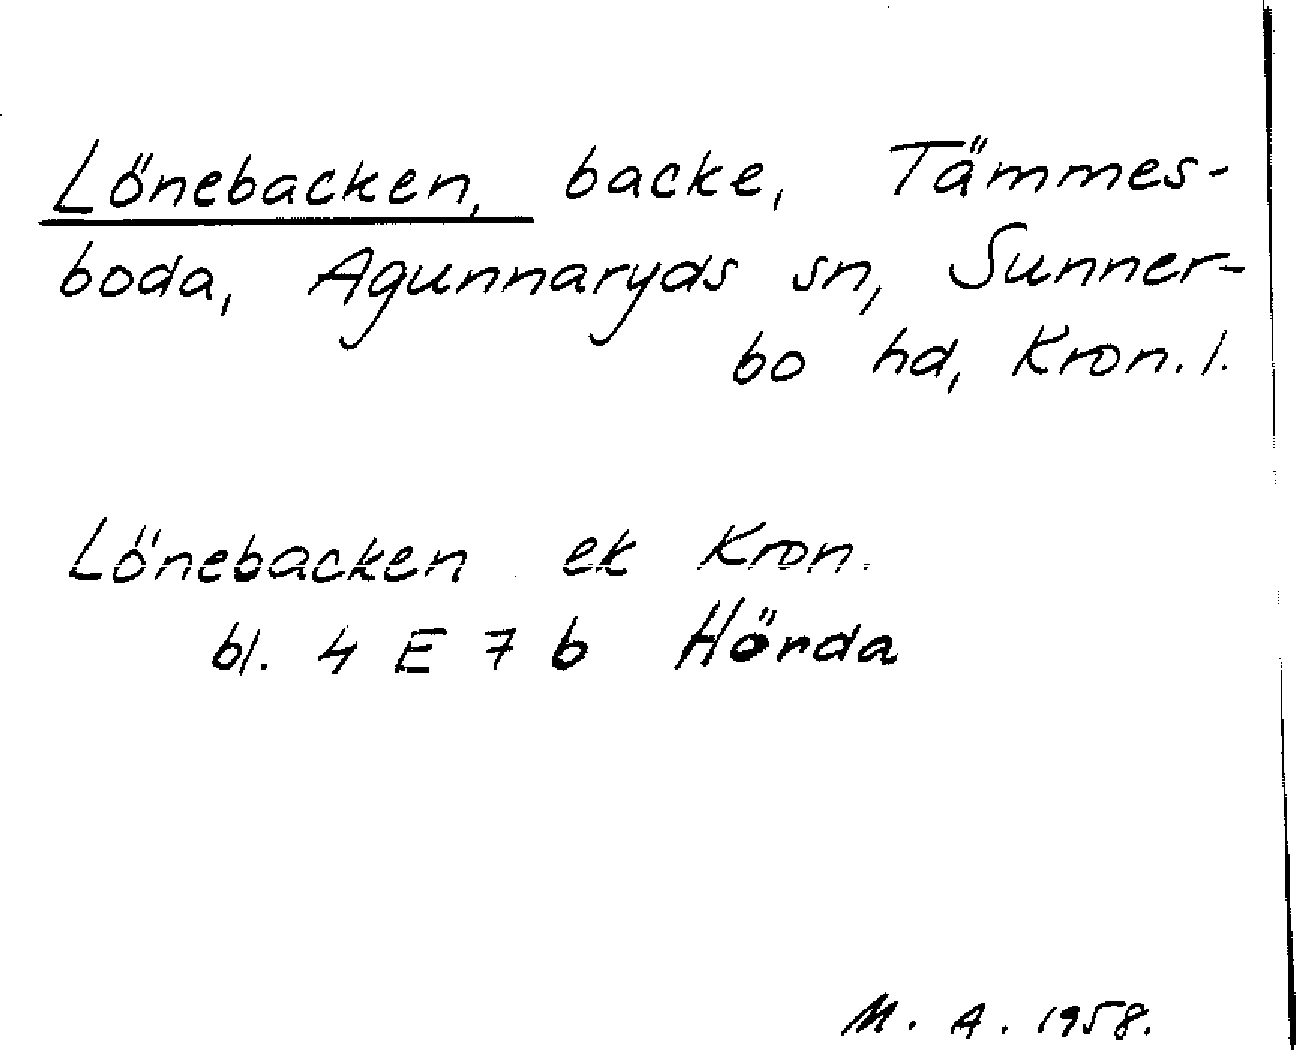 Lönebacken, backe, Tämmes-
boda, Agunnaryds sn, Sunner-
bo hd, Kron. l.
Lönebacken ek Kron.
bl. 4 E 7 b Hörda
M. A. 1958.